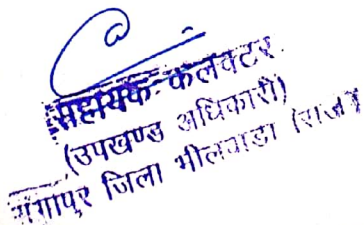 सहायक कलेक्टर
(उपखण्ड अधिकारी)
गंगापुर जिला भीलवाडा (राज०)